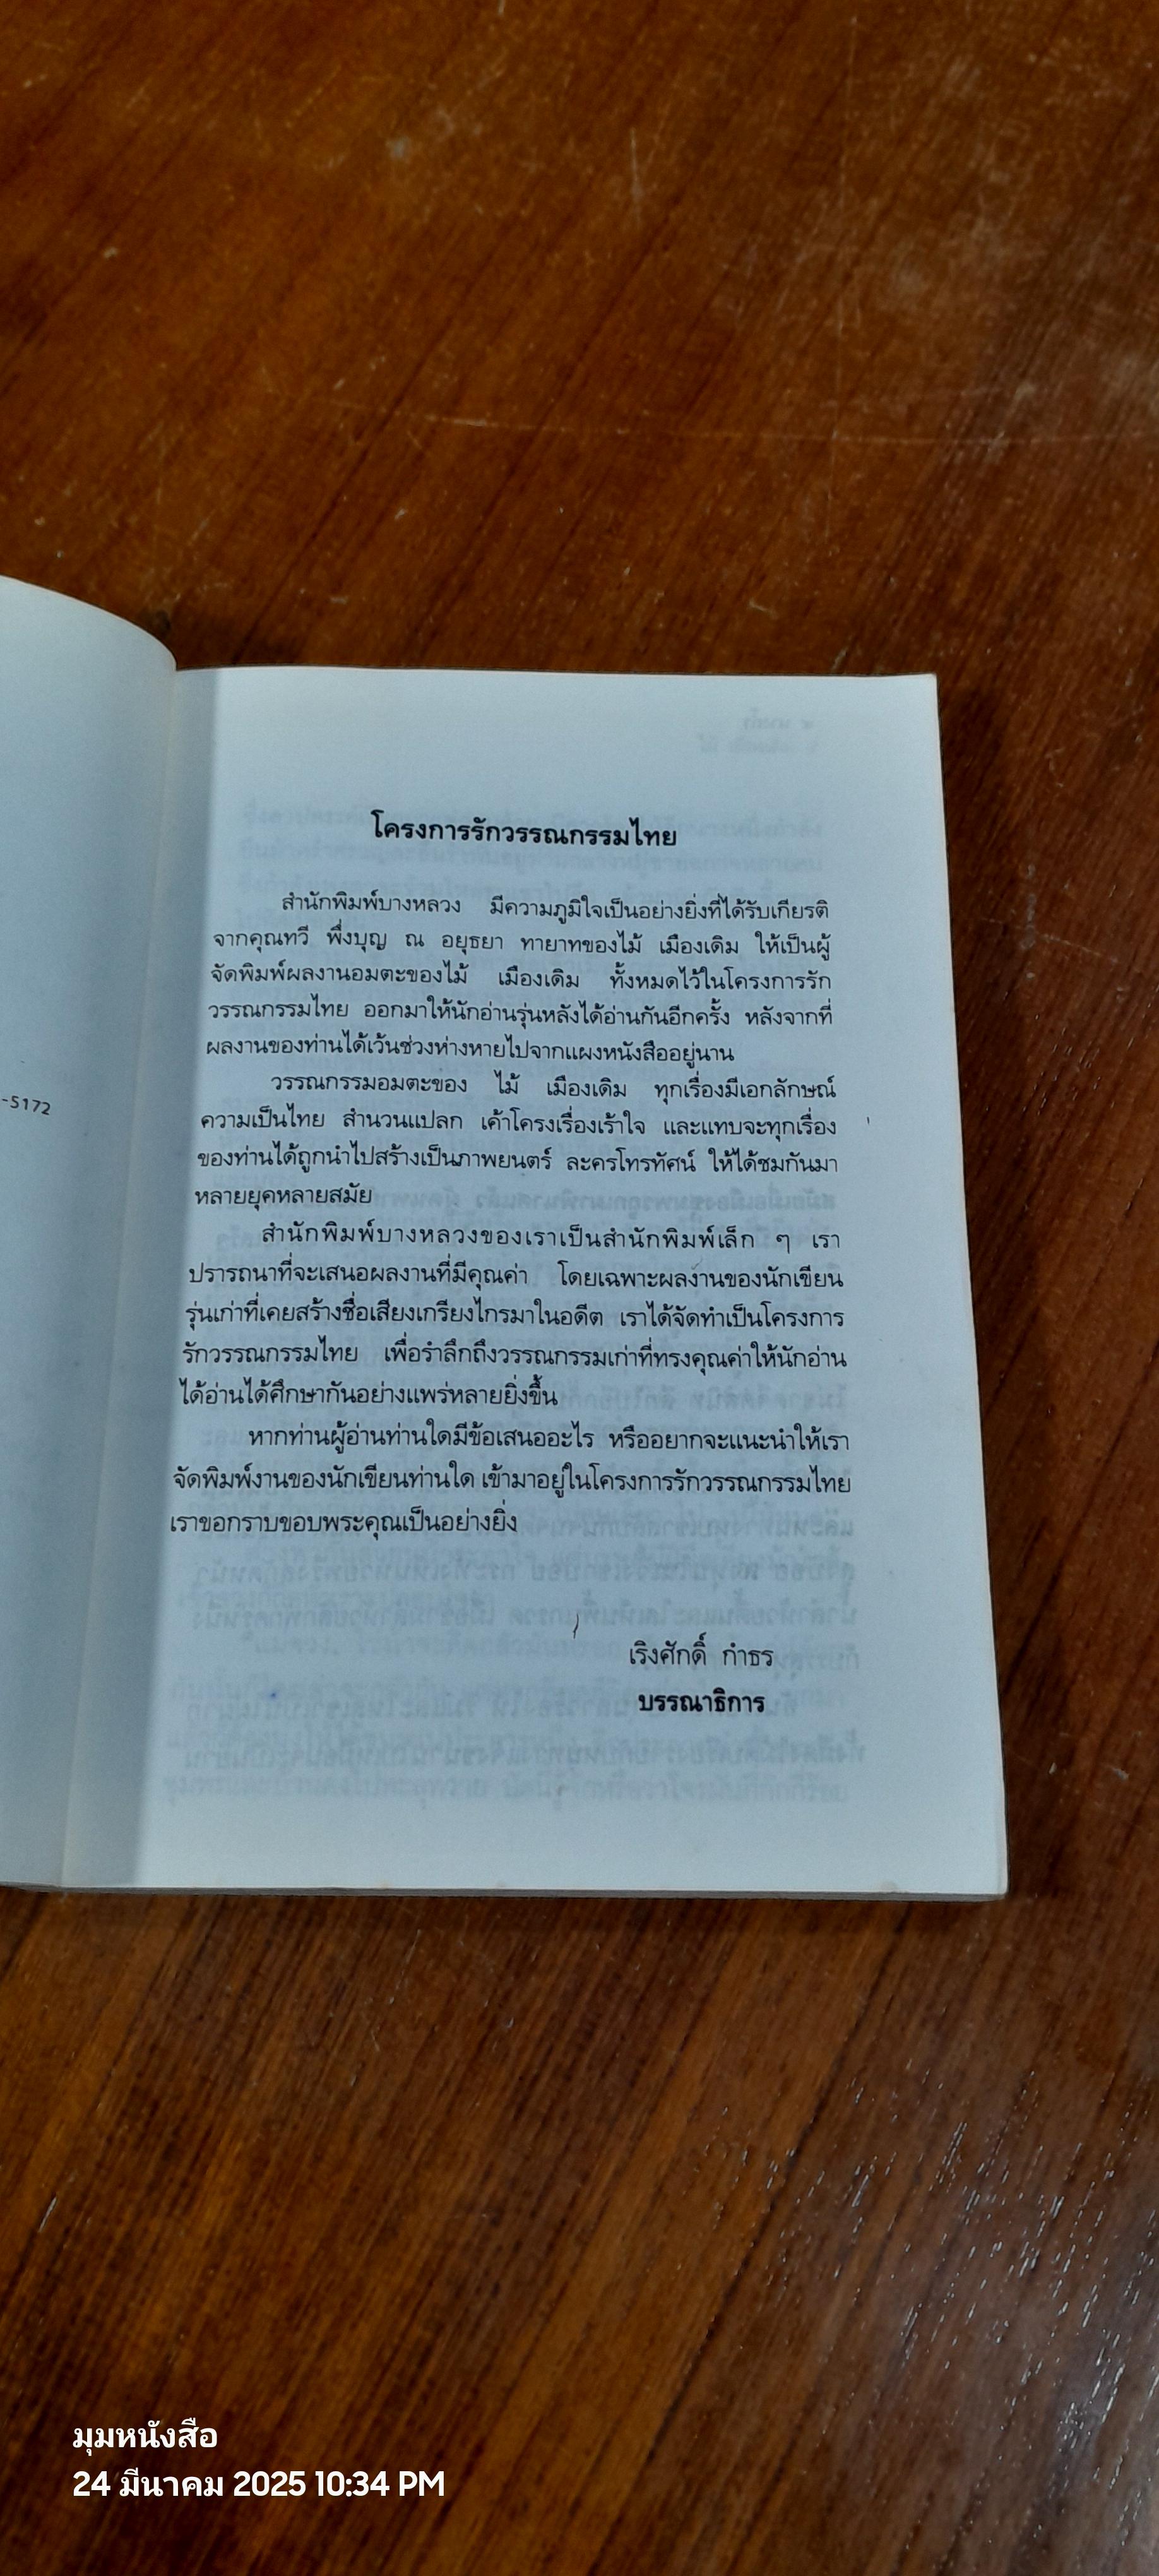 -5172
โครงการรักวรรณกรรมไทย
สำนักพิมพ์บางหลวง มีความภูมิใจเป็นอย่างยิ่งที่ได้รับเกียรติ
จากคุณทวี พึ่งบุญ ณ อยุธยา ทายาทของไม้ เมืองเดิม ให้เป็นผู้
จัดพิมพ์ผลงานอมตะของไม้ เมืองเดิม ทั้งหมดไว้ในโครงการรัก
วรรณกรรมไทย ออกมาให้นักอ่านรุ่นหลังได้อ่านกันอีกครั้ง หลังจากที่
ผลงานของท่านได้เว้นช่วงห่างหายไปจากแผงหนังสืออยู่นาน
วรรณกรรมอมตะของ ไม้ เมืองเดิม ทุกเรื่องมีเอกลักษณ์
ความเป็นไทย สำนวนแปลก เค้าโครงเรื่องเร้าใจ และแทบจะทุกเรื่อง
ของท่านได้ถูกนำไปสร้างเป็นภาพยนตร์ ละครโทรทัศน์ ให้ได้ชมกันมา
หลายยุคหลายสมัย
สำนักพิมพ์บางหลวงของเราเป็นสำนักพิมพ์เล็ก ๆ เรา
ปรารถนาที่จะเสนอผลงานที่มีคุณค่า โดยเฉพาะผลงานของนักเขียน
รุ่นเก่าที่เคยสร้างชื่อเสียงเกรียงไกรมาในอดีต เราได้จัดทำเป็นโครงการ
รักวรรณกรรมไทย เพื่อรำลึกถึงวรรณกรรมเก่าที่ทรงคุณค่าให้นักอ่าน
ได้อ่านได้ศึกษากันอย่างแพร่หลายยิ่งขึ้น
หากท่านผู้อ่านท่านใดมีข้อเสนออะไร หรืออยากจะแนะนำให้เรา
จัดพิมพ์งานของนักเขียนท่านใด เข้ามาอยู่ในโครงการรักวรรณกรรมไทย
เราขอกราบขอบพระคุณเป็นอย่างยิ่ง
เริงศักดิ์ กำธร
บรรณาธิการ
มุมหนังสือ
24 มีนาคม 2025 10:34 PM